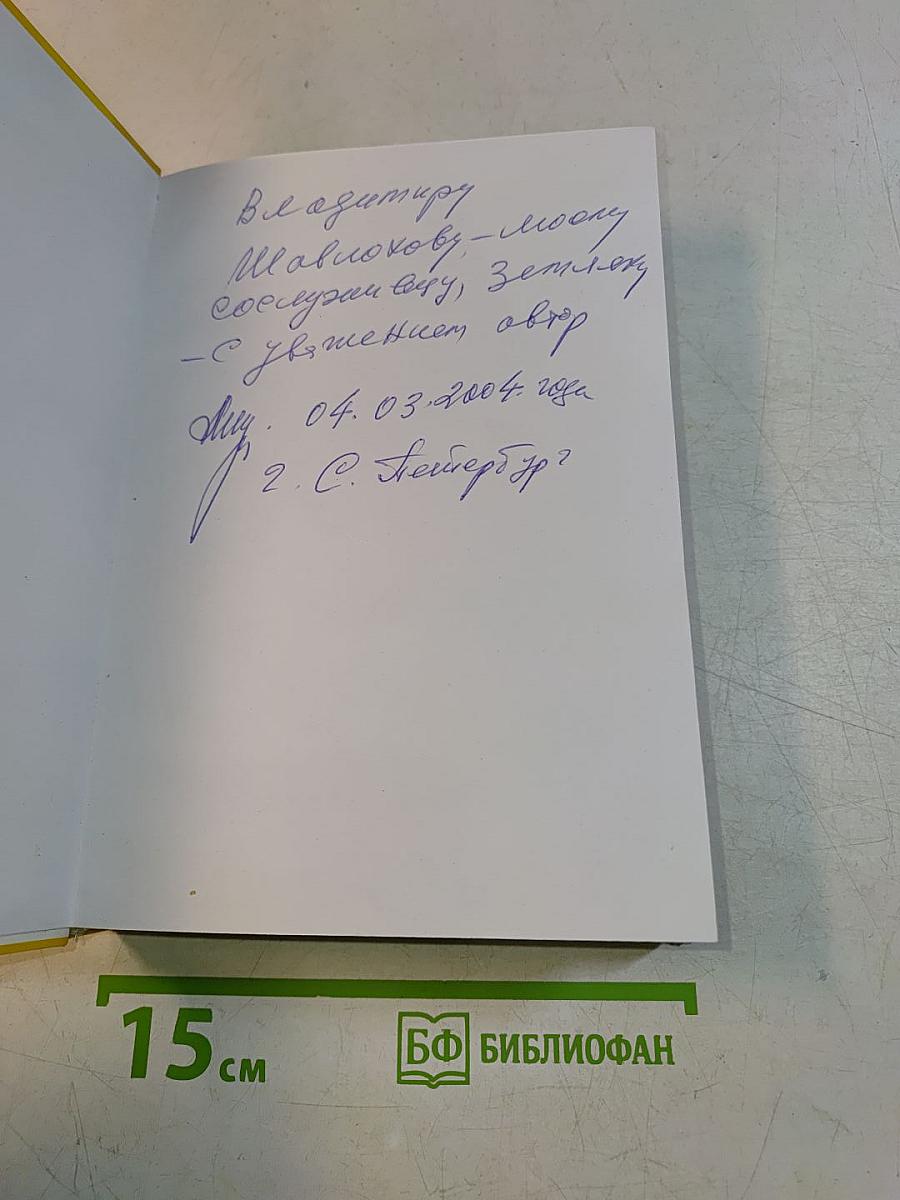 Владимиру
Шавлохову, – моему
сослуживцу, земляку
– с уважением, автор
04.03.2004 года
г. С. Петербург
15 см
БФ БИБЛИОФАН